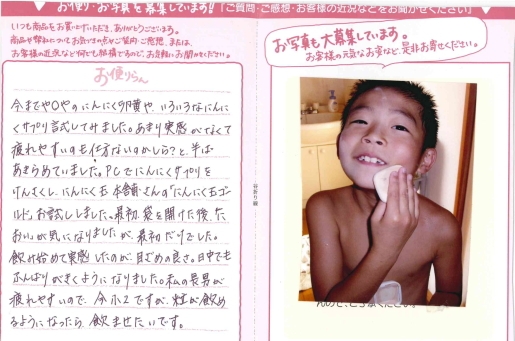 お便り・お写真を募集しています!!「ご質問・ご感想・お客様の近況などをお聞かせください」
いつも商品をお買い上げいただき、ありがとうございます。
お客様の近況など何でも結構ですので、お気軽にお聞かせください。
お便りらん
今までや○やのにんにく卵黄や、いろいろなにんに
くサプリ試してみました。あまり実感がなくて
疲れやすいのも仕方ないのかしら?と、半ば
あきらめていました。PCでにんにくサプリを
けんさくし、にんにく玉本舗さんの「にんにく玉ゴー
ルド」お試ししました。最初、袋を開けた後、にお
おいが気になりましたが、最初だけでした。
飲み始めて実感したのが、目ざめの良さ。日中でも
ふんばりがきくようになりました。私の長男が
疲れやすいので、今小2ですが、粒が飲め
るようになったら、飲ませたいです。
谷折り線
お写真も大募集しています。
お客様の元気なお姿など、是非お寄せください。